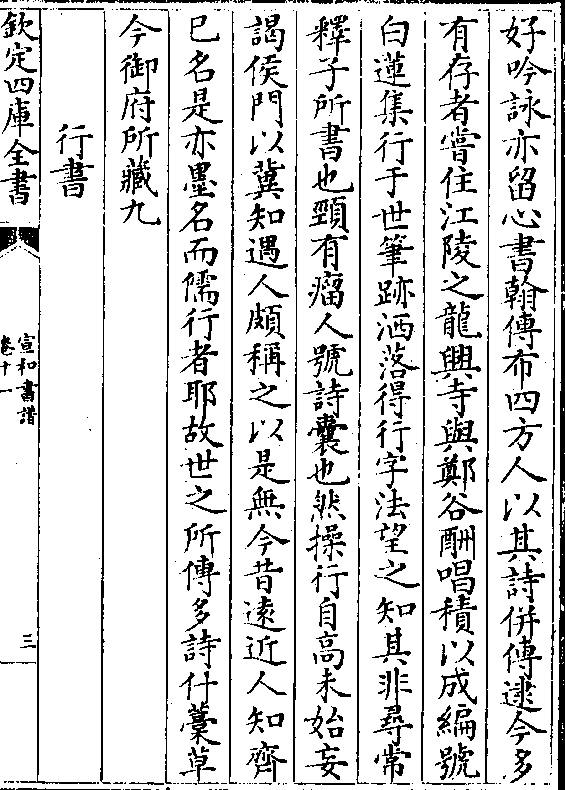 好吟詠亦留心書翰傳布四方人以其詩併傳逮今多
有存者嘗住江陵之龍興寺與鄭谷酬唱積以成編號
白蓮集行于世筆跡洒落得行字法望之知其非尋常
釋子所書也頸有瘤人號詩囊也然操行自高未始妄
謁侯門以冀知遇人頗稱之以是無今昔遠近人知齊
已名是亦墨名而儒行者耶故世之所傳多詩什藁草
今御府所藏九
行書
欽定四庫全書
宣和書譜
卷十一
三